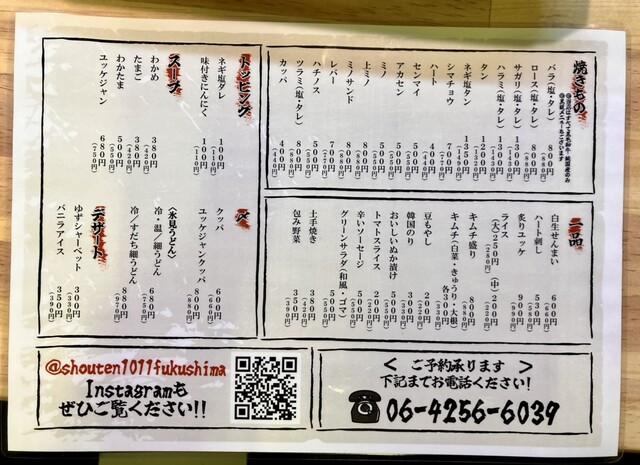 焼きもの。
バラ（塩・タレ） 800円（880円）
ロース（塩・タレ） 800円（880円）
サガリ（塩・タレ） 1300円
ハラミ（塩・タレ） 1300円
タン 1200円
ネギ塩タン 1350円
シマチョウ 700円
ハート 400円（440円）
センマイ 500円
アカセン 500円
ミノ 500円
上ミノ 800円
ミノサンド 800円（880円）
レバー 700円
ハチノス 500円
ツラミ（塩・タレ） 800円（880円）
カッパ 400円（440円）
一品
白生せんまい 600円（660円）
ハート刺し 530円
炙りユッケ 900円
ライス
（大）250円 （中）200円
キムチ盛り 800円
キムチ（白菜・きゅうり・大根） 各300円（330円）
豆もやし 200円
韓国のり 200円
おいしいぬか漬け 500円
トマトスライス 200円
辛いソーセージ 500円
グリーンサラダ（和風・ゴマ） 500円
土手焼き 380円
包み野菜 350円
トッピング
ネギ塩タレ 100円（110円）
味付きにんにく 100円（110円）
スープ
わかめ 380円（420円）
たまご 380円（420円）
わかたま 500円（550円）
ユッケジャン 680円（750円）
〆
クッパ 600円（660円）
ユッケジャンクッパ 800円（880円）
〈氷見うどん〉
冷・温／細うどん 680円（750円）
冷／すだち細うどん 880円（970円）
デザート
ゆずシャーベット 300円（330円）
バニラアイス 350円（390円）
@shouten1011fukushima
Instagramも
ぜひご覧ください!!
＜ ご予約承ります ＞
下記までお電話ください!
☎06-4256-6039